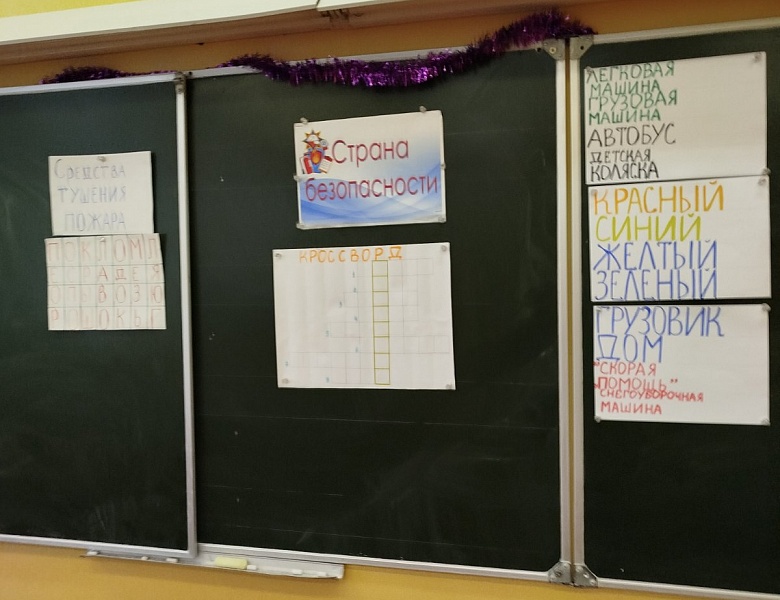 Средства
тушения
пожара
Страна
безопасности
КРОССВОРД
ЛЕГКОВАЯ
МАШИНА
ГРУЗОВАЯ
МАШИНА
АВТОБУС
ДЕТСКАЯ
КОЛЯСКА
КРАСНЫЙ
СИНИЙ
ЖЕЛТЫЙ
ЗЕЛЕНЫЙ
ГРУЗОВИК
ДОМ
"СКОРАЯ
ПОМОЩЬ"
СНЕГОУБОРОЧНАЯ
МАШИНА